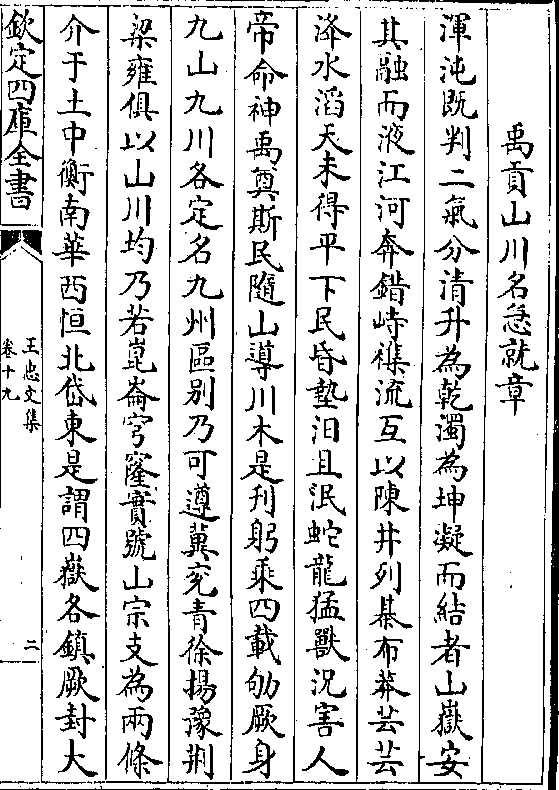 禹貢山川名急就章
渾沌既判二氣分清升為乾濁為坤凝而結者山嶽安
其融而液江河奔錯峙襍流互以陳井列棊布莽芸芸
洚水滔天未得平下民昏墊汩且泯蛇龍猛獸況害人
帝命神禹奠斯民隨山導川木是刋躬乘四載劬厥身
九山九川各定名九州區别乃可遵冀兖青徐揚豫荆
梁雍俱以山川均乃若崑崙穹窿實號山宗支為兩條
介于土中衡南華西恒北岱東是謂四嶽各鎮厥封大
欽定四庫全書
王忠文集
卷十九
二